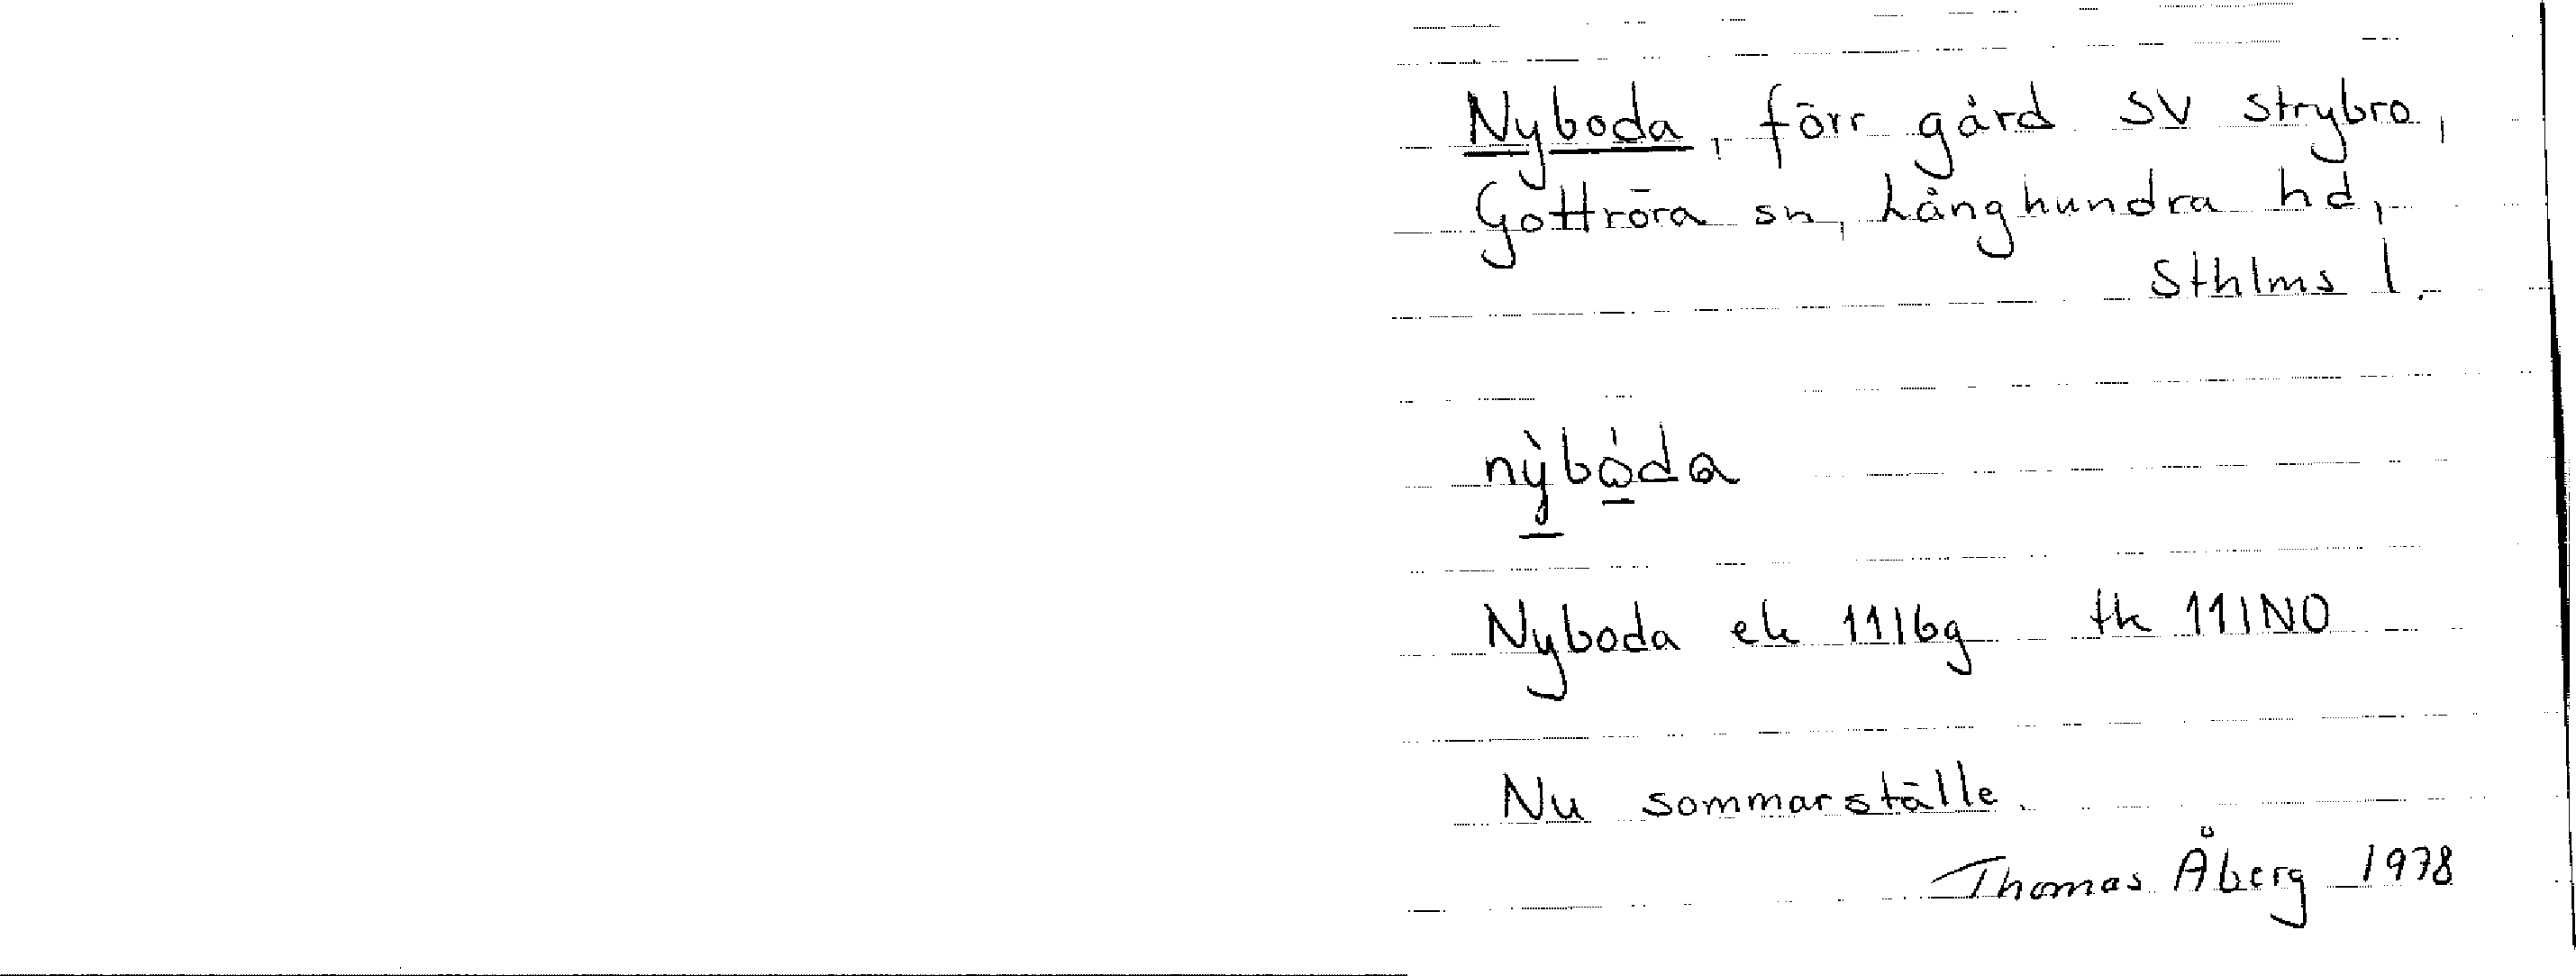 Nyboda, förr gård SV Strybro,
Gottröra sn, Långhundra hd,
Sthlms l.
nỳbɷ́da
Nyboda ek 11I6g tk 11INO
Nu sommarställe.
Thomas Åberg 1978